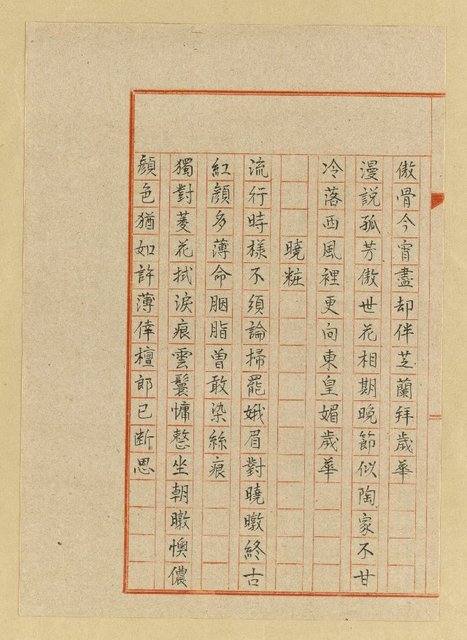 傲骨今宵盡却伴芝蘭拜歲華
漫說孤芳傲世花相期晚節似陶家不甘
冷落西風裡更向東皇媚歲華
曉粧
流行時樣不須論掃罷娥眉對曉暾終古
紅顏多薄命胭脂曾敢染絲痕
獨對菱花拭淚痕雲鬟慵整坐朝暾懊儂
顏色猶如許薄倖檀郎已断思